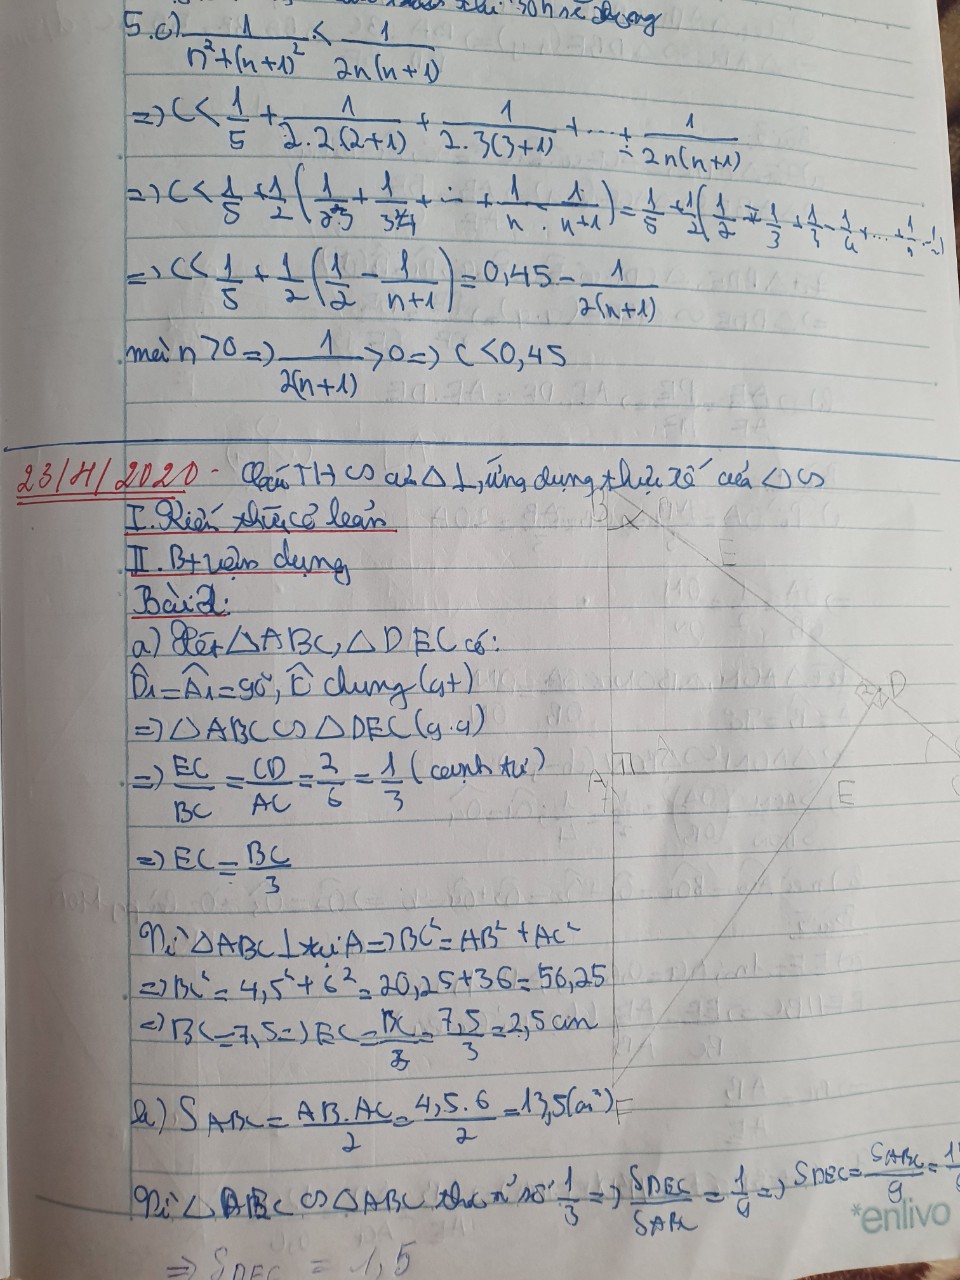 5.c) 1/(n²+(n+1)²) < 1/(2n(n+1))
=> C < 1/5 + 1/(2.2(2+1)) + 1/(2.3(3+1)) + ... + 1/(2n(n+1))
=> C < 1/5 + 1/2 (1/2.3 + 1/3.4 + ... + 1/n . 1/(n+1)) = 1/5 + 1/2 (1/2 - 1/3 + 1/3 - 1/4 + ...
=> C < 1/5 + 1/2 (1/2 - 1/(n+1)) = 0,45 - 1/(2(n+1))
mà n > 0 => 1/(2(n+1)) > 0 => C < 0,45
23/4/2020 - Các TH ∽ của Δ ⊥, ứng dụng thực tế của Δ ∽
I. Kiến thức cơ bản
II. B+ vận dụng
Bài 2:
a) Xét ΔABC, ΔDEC có:
D̂₁ = Â₁ = 90°, Ĉ chung (gt)
=> ΔABC ∽ ΔDEC (g.g)
=> EC/BC = CD/AC = 2/6 = 1/3 (cạnh tư)
=> EC = BC/3
Vì ΔABC ⊥ tại A => BC² = AB² + AC²
=> BC² = 4,5² + 6² = 20,25 + 36 = 56,25
=> BC = 7,5 => EC = BC/3 = 7,5/3 = 2,5 cm
b) S ABC = AB.AC/2 = 4,5.6/2 = 13,5 (cm²)
Vì ΔDEC ∽ ΔABC theo tỉ số 1/3 => SDEC/SABC = 1/9 => SDEC = SABC/9 =
=> SDEC = 1,5
B
E
D
A
E
F
*enlivo